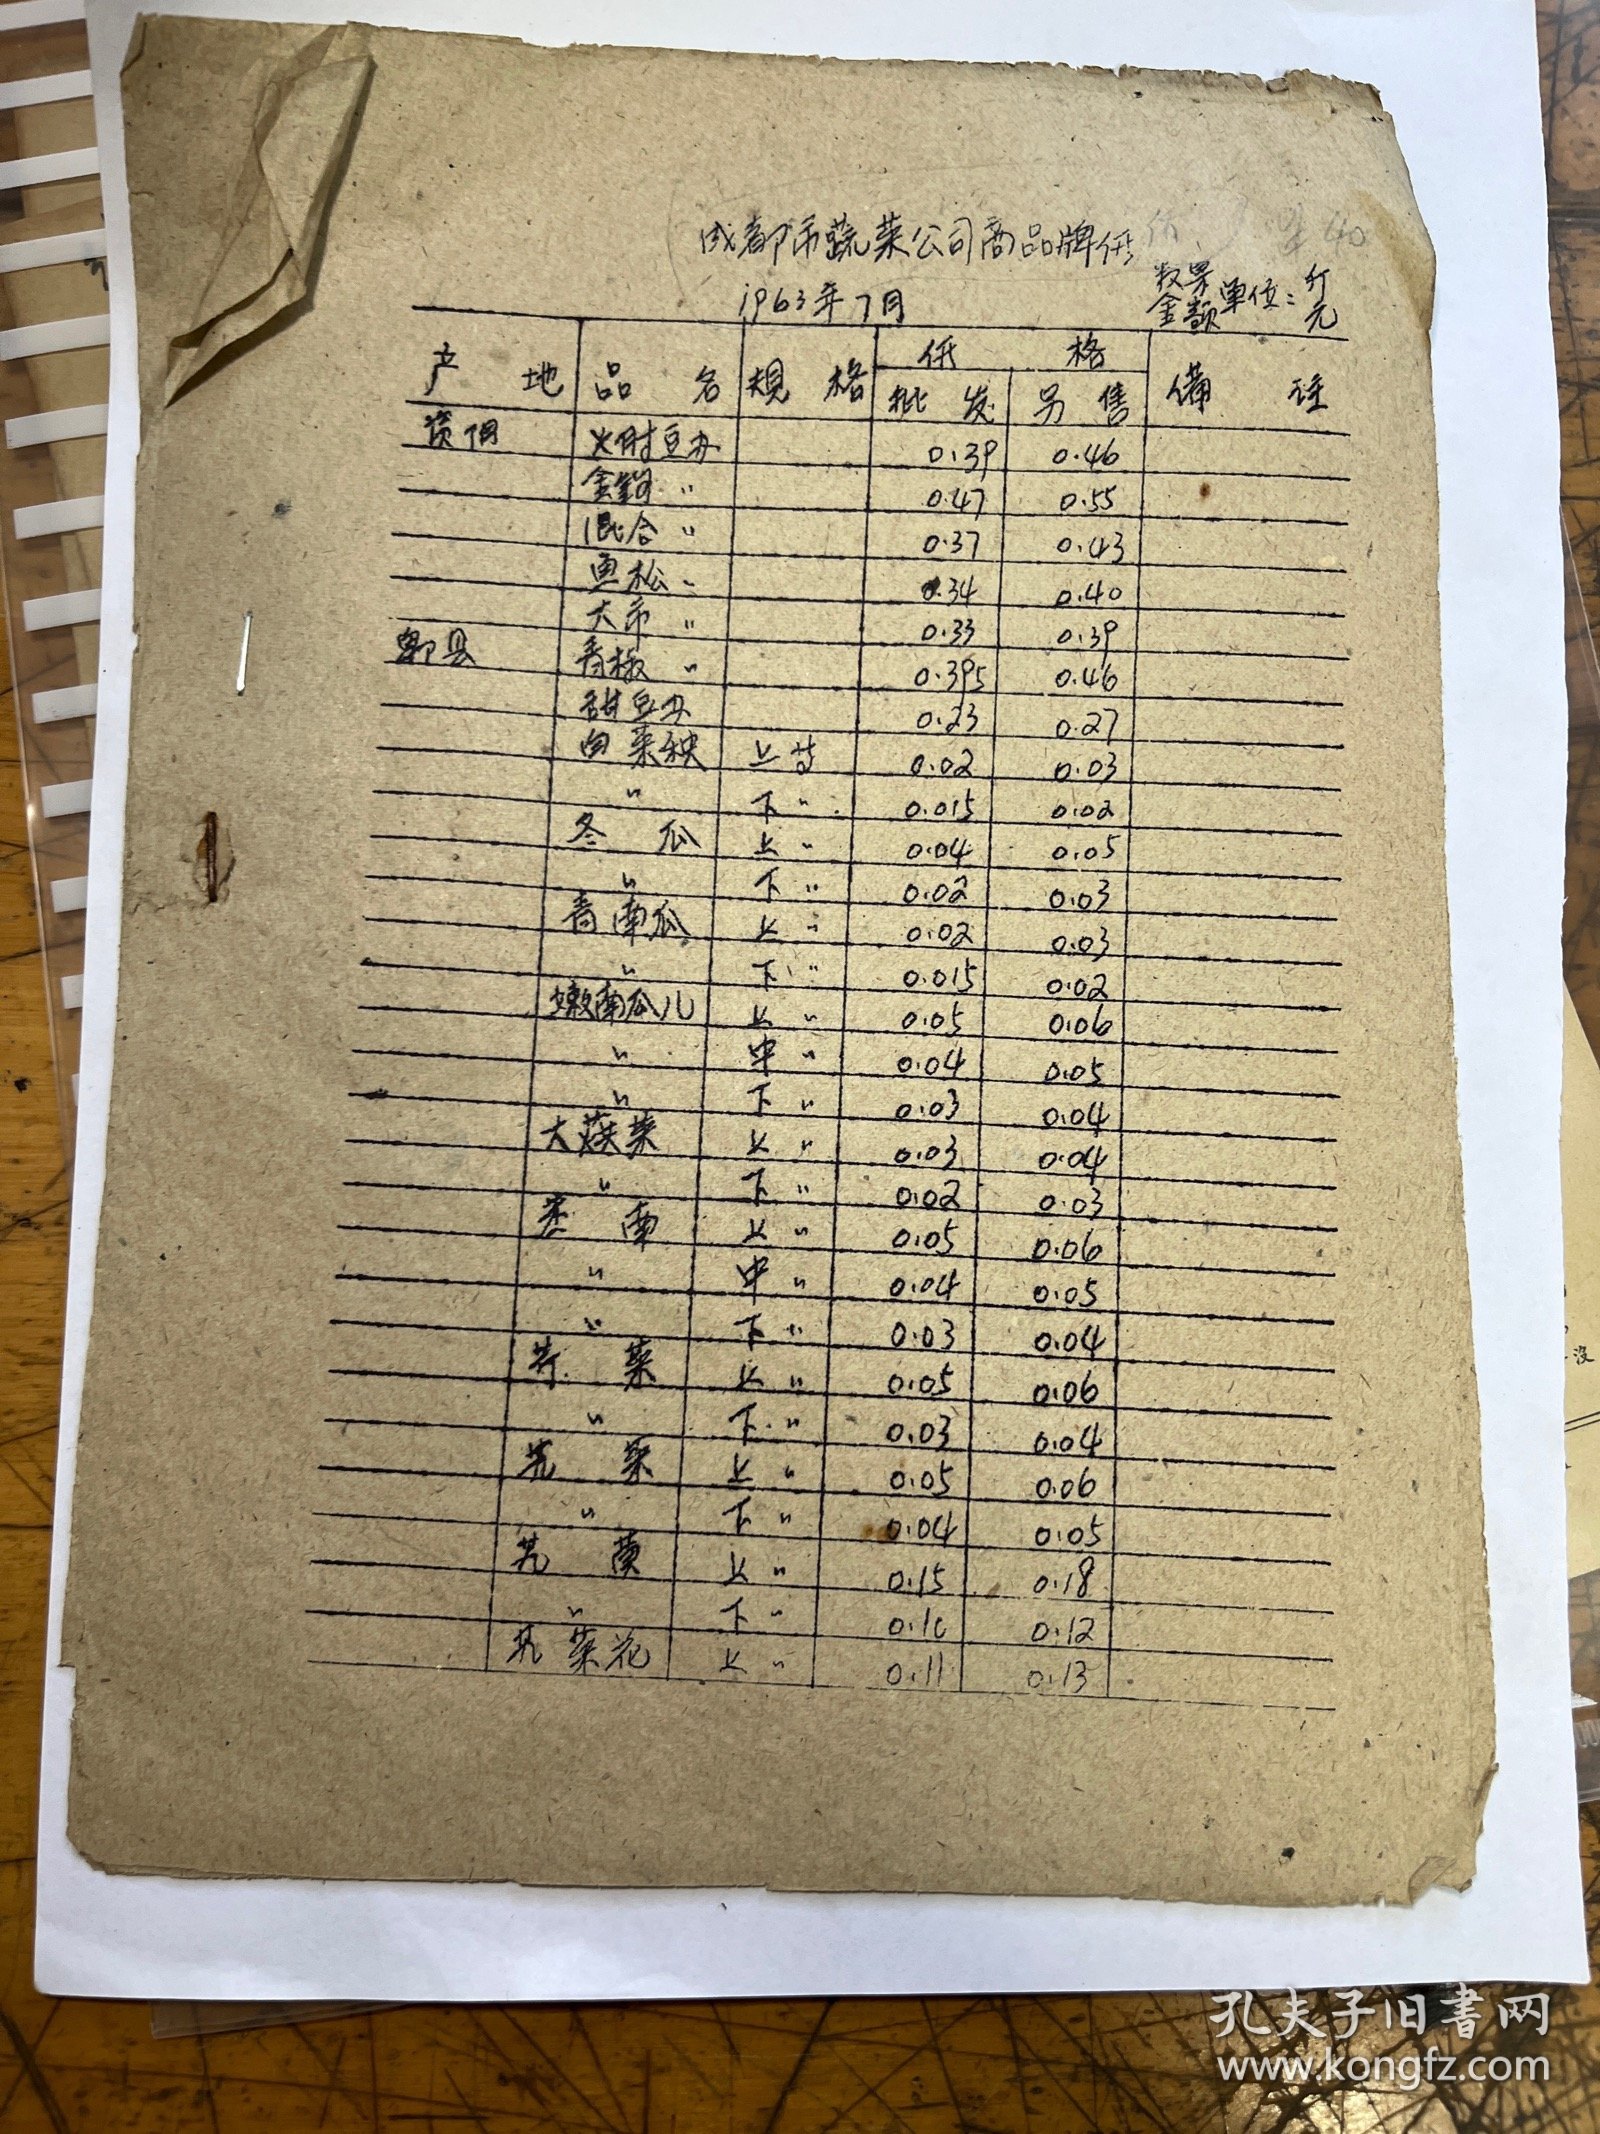 成都市蔬菜公司商品牌价
1963年7月
数量 金额 单位：斤 元
产地 品名 规格 价格 备注
批发 另售
资阳 火肘豆办 0.39 0.46
金钩 〃 0.47 0.55
混合 〃 0.37 0.43
鱼松 〃 0.34 0.40
大市 〃 0.33 0.39
郫县 香椒 〃 0.395 0.46
甜豆办 0.23 0.27
白菜秧 上等 0.02 0.03
〃 下〃 0.015 0.02
冬瓜 上〃 0.04 0.05
〃 下〃 0.02 0.03
青南瓜 上〃 0.02 0.03
〃 下〃 0.015 0.02
嫩南瓜儿 上〃 0.05 0.06
〃 中〃 0.04 0.05
〃 下〃 0.03 0.04
大菜 上〃 0.03 0.04
〃 下〃 0.02 0.03
上〃 0.05 0.06
〃 中〃 0.04 0.05
〃 下〃 0.03 0.04
菜 上〃 0.05 0.06
〃 下〃 0.03 0.04
菜 上〃 0.05 0.06
〃 下〃 0.04 0.05
上〃 0.15 0.18
〃 下〃 0.10 0.12
菜花 上〃 0.11 0.13
孔夫子旧书网
www.kongfz.com